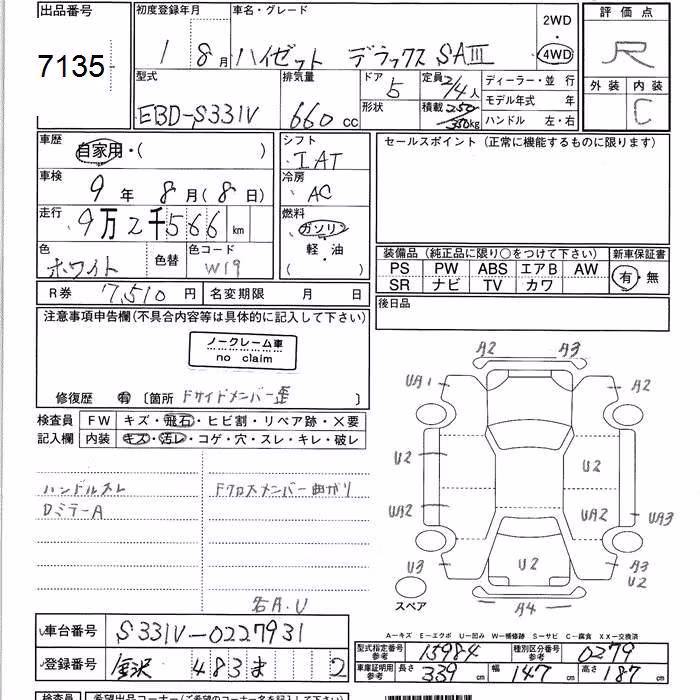 出品番号
7135
初度登録年月
1 8月
車名・グレード
ハイゼット デラックス SAⅢ
2WD
4WD
評価点
R
型式
EBD-S331V
排気量
660cc
ドア
5
形状
定員 2/4人
積載 250/350kg
ディーラー・並行
モデル年式 年
ハンドル 左・右
外装 内装
C
車歴
自家用・( )
車検
9年 8月(8日)
走行
9万2千566km
色
ホワイト
色替
色コード
W19
シフト
IAT
冷房
AC
燃料
ガソリン
軽・油
( )
セールスポイント(正常に機能するものに限ります)
装備品(純正品に限り○をつけて下さい)
PS PW ABS エアB AW
SR ナビ TV カワ
新車保証書
有・無
R券 7,510円
名変期限 月 日
後日品
注意事項申告欄(不具合内容等は具体的に記入して下さい)
ノークレーム車
no claim
修復歴 有 〔箇所 Fサイドメンバー歪 〕
検査員
記入欄
FW キズ・飛石・ヒビ割・リペア跡・X要
内装 キズ・汚レ・コゲ・穴・スレ・キレ・破レ
ハンドルスレ
DミラーA
Fクロスメンバー曲がり
右A.U
A2 A3
UA1 A2
U2 U2
UA2 UA2 UA3
U3 U2 A3
U2
A4
スペア
A-キズ E-エクボ U-凹み W-補修跡 S-サビ C-腐食 XX-交換済
車台番号 S331V-0227931
登録番号 金沢 483 ま 2
型式指定番号
参考
15984
種別区分番号
参考
0279
車庫証明用
参考
長さ 339cm 幅 147cm 高さ 187cm
検査員
希望出品コーナー(ご希望のコーナー名を記入して下さい)